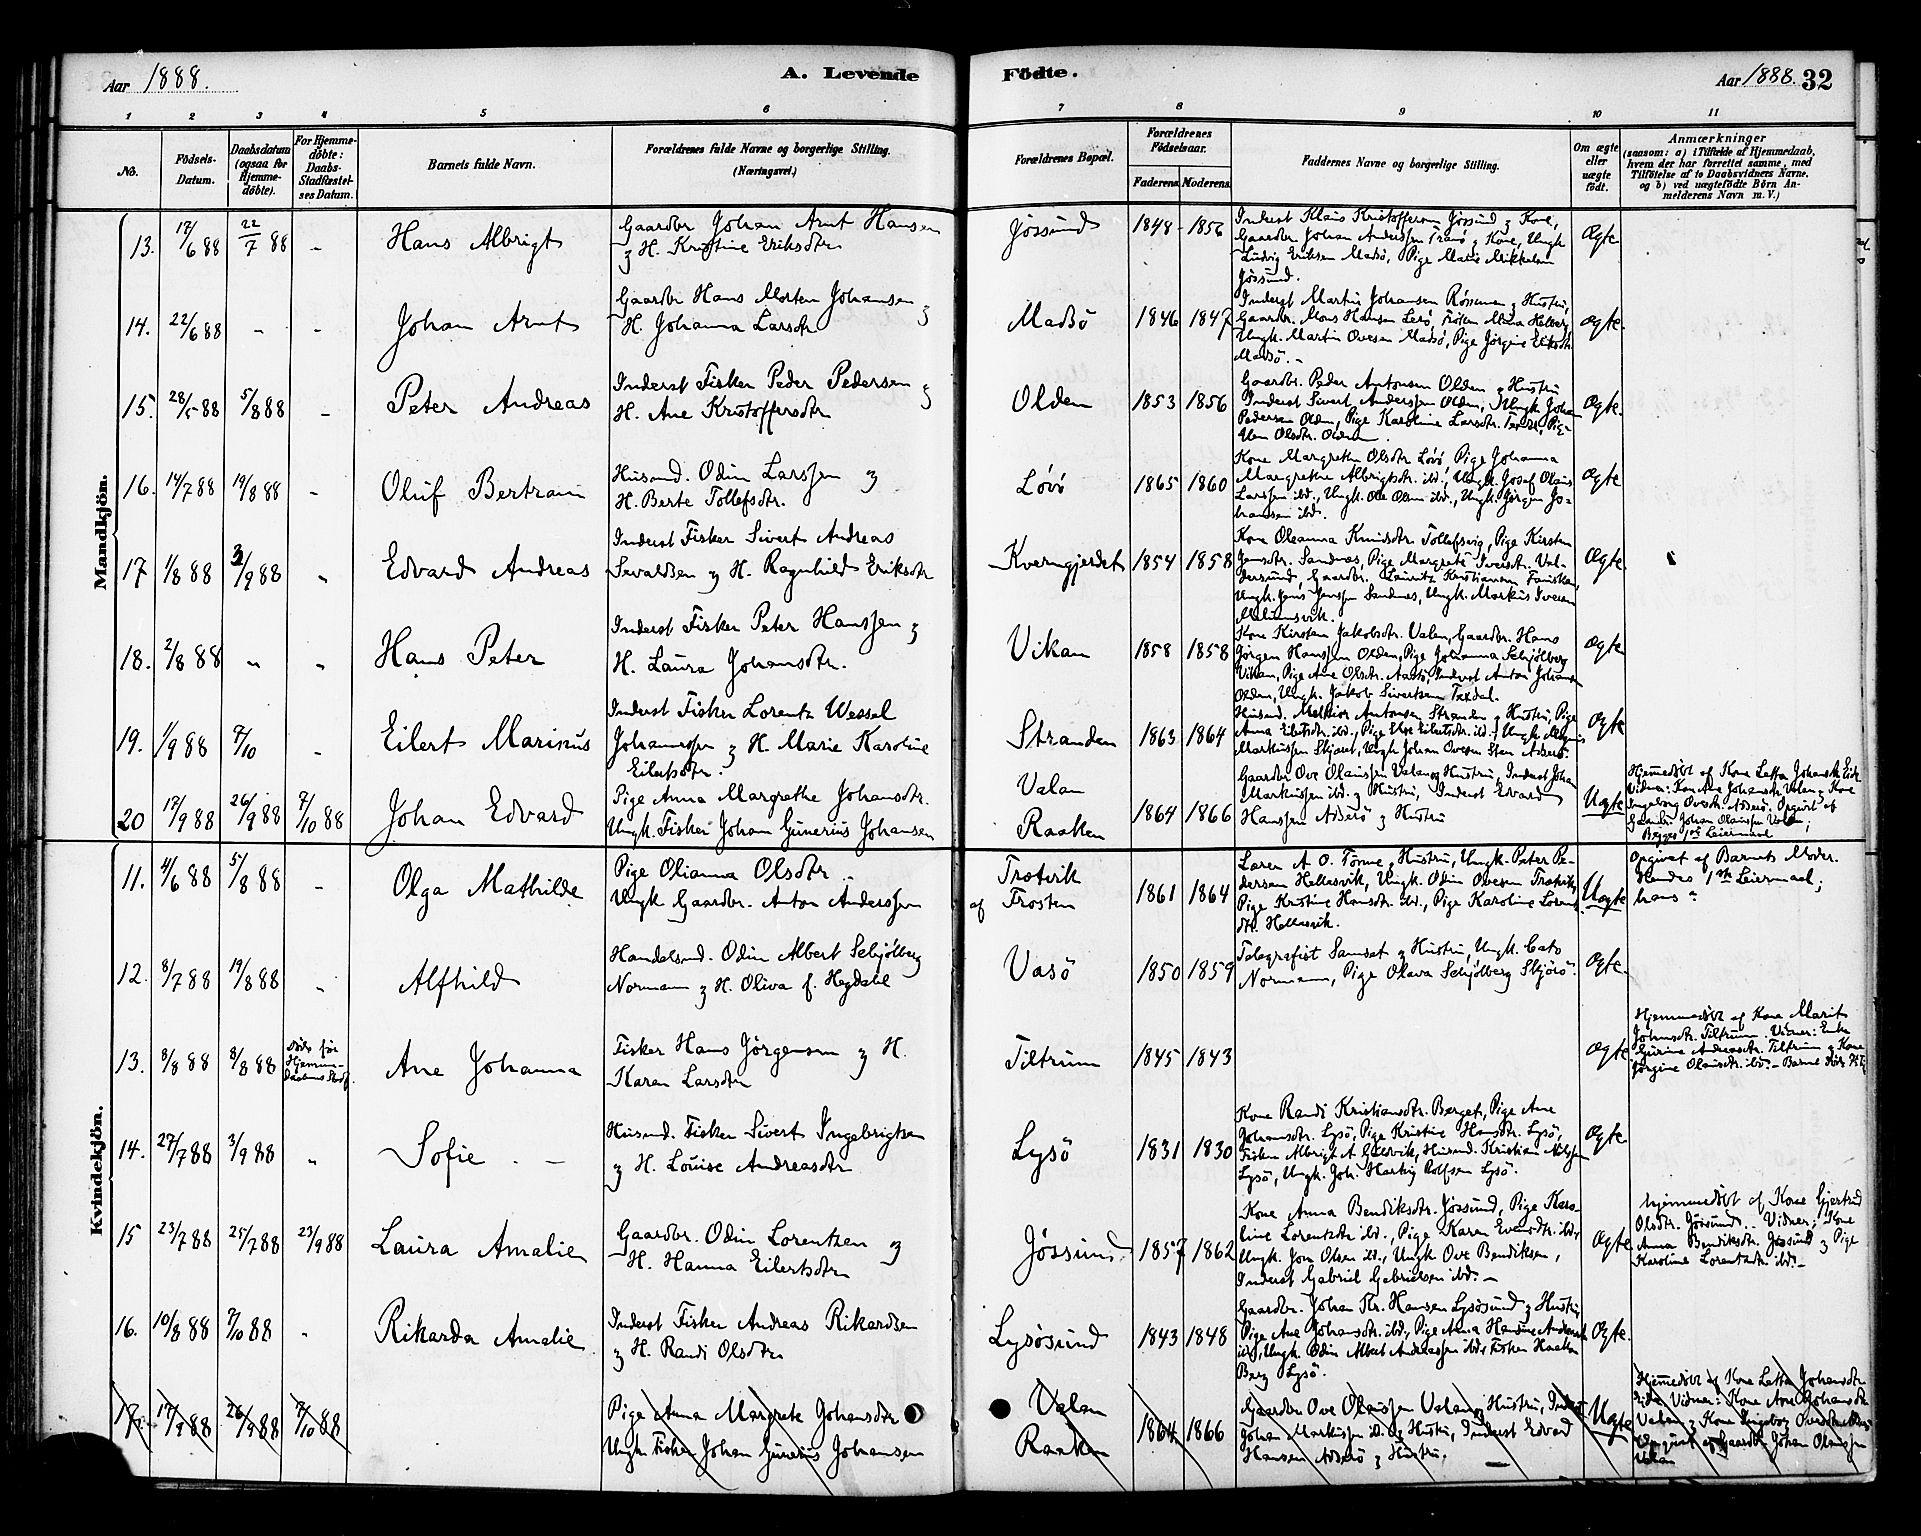 Aar 1888.
A. Levende
Födte.
Aar 1888. 32
1 2 3 4 5 6 7 8 9 10 11
No.
Födsels-Datum.
Daabsdatum (ogsaa for Hjemmedöbte).
For Hjemmedöbte: Daabs-Stadfæstelses Datum.
Barnets fulde Navn.
Forældrenes fulde Navne og borgerlige Stilling. (Næringsvei.)
Forældrenes Bopæl.
Forældrenes Födselsaar.
Faderens. Moderens.
Faddernes Navne og borgerlige Stilling.
Om ægte eller uægte födt.
Anmærkninger
(saasom: a) i Tilfælde af Hjemmedaab, hvem der har forrettet samme, med Tilföielse af to Daabsvidners Navne, og b) ved uægtefödte Börn Anmelderens Navn m. V.)
Mandkjön.
13. 17/6 88 22/7 88 - Hans Albrigt
Gaardbr Johan Arnt Hansen
& H. Kristine Eriksdtr
Jössund 1848 - 1856
Inderst Klaus Kristoffersen Jössund & Kone,
Gaardbr Johan Anderssen & Kone, Ungk
Ludvig Eriksen Madsö, Pige Marie Mikkelsen
Jössund.
Ægte
14. 22/6 88 - - Johan Arnt
Gaardbr Hans Morten Johansen &
H. Johanna Larsdtr
Madsö 1846 1847
Inderst Martin Johansen & Hustru,
Gaardbr. Mons Hansen
Ungk. Martin Ovesen Madsö, Pige Jörgine Eriksdtr
Madsö. -
ægte.
15. 28/5 88 5/8 88 - Peter Andreas
Inderst Fisker Peder Pedersen &
H. Ane Kristoffersdtr
Olden 1853 1856
Gaardbr. Peder Antonsen Olden & Hustru
Inderst Sivert Anderssen Olden, Ungk Johan
Pedersen Olden, Pige Karoline Larsdtr. Pige
Olsdtr. Olden.
Ægte.
16. 14/7 88 19/8 88 - Oluf Bertram
Husmd. Odin Larssen &
H. Berte Tollefsdtr.
Lövö 1865 1860
Kone Margrethe Olsdtr Lövö, Pige Johanna
Margrethe Albrigtsdtr. ibd., Ungk. Josef Olaus
Larssen ibd., Ungk. Ole Olsen ibd., Ungk. Jörgen Jo-
hansen ibd.
Ægte
17 1/8 88 3/9 88 " Edvard Andreas
Inderst Fisker Sivert Andreas
Sivardsen & H. Ragnhild Eriksdtr
Kverngjerdet 1854 1858
Kone Oleanna Knudsdtr Tollefsvig, Pige Kirsten
Jensdtr. Sandnes, Pige Margrete Iversdtr. Val-
dersund, Gaardbr. Lauritz Kristiansen
Ungk. Jens Jenssen Sandnes, Ungk. Markus Iversen
Ægte.
18. 2/8 88 " " Hans Peter
Inderst Fisker Peter Hanssen &
H. Laura Johansdtr.
Vikan 1858 1858
Kone Kirsten Jakobsdtr. Valen, Gaardbr. Hans
Jörgen Hanssen Olden, Pige Johanna Schjölberg
Vikan, Pige Ane Olsdtr. Inderst Anton Johansen
Olden, Ungk. Jakob Sivertsen Texdal.
Ægte
19. 1/9 88 7/10 - Eilert Marinus
Inderst Fisker Lorentz Wessel
Johannssen & H. Marie Karoline
Eilertsdtr.
Stranden 1863 1864
Husmd. Melkior Antonsen Stranden & Hustru, Pige
Anna Eilertsdtr. ibd., Pige Else Eilertsdtr. ibd., Ungk
Markussen Ungk Johan Ovesen
Ægte
20 17/9 88 26/9 88 7/10 88 Johan Edvard
Pige Anna Margrethe Johansdtr.
Ungk. Fisker Johan Gunerius Johansen
Valan
Raaken 1864 1866
Gaardbr Ove Olaussen Valan & Hustru, Inderst Johan
Markussen ibd. & Hustru, Inderst Edvard
Hanssen & Hustru
Uægte
Hjemmedöbt af Kone Letta Johansdtr
Vidner: Kone Ane Johansdtr. Valan & Kone
Ingeborg Ovesdtr. Opgivet af
Gaardbr. Johan Olaussen Valan;
Begges 1ste Leiermaal
Kvindekjön.
11. 4/6 88 5/8 88 - Olga Mathilde
Pige Olianna Olsdtr.
Ungk Gaardbr. Anton Anderssen
Trotvik
af Frosten 1861 1864
Lærer A. O. & Hustru, Ungk. Peter Pe-
dersen Hellesvik, Ungk. Odin Ovesen Trotvik,
Pige Kristine Hansdtr. ibd., Pige Karoline Lorents-
dtr. Hellesvik.
Uægte
Opgivet af Barnets Moder.
Hendes 1ste Leiermaal;
hans "
12. 8/7 88 19/8 88 " Alfhild
Handelsmd. Odin Albert Schjölberg
Normann & H. Oliva f. Hegdahl
Vasö 1850 1859
Telegrafist Samset & Hustru, Ungk. Cato
Normann, Pige Olava Schjölberg
Ægte.
13. 8/8 88 8/8 88 Döde för Hjemme- Ane Johanna
Fisker Hans Jörgensen & H.
Karen Larsdtr
Tiltrum 1845 1843
ægte
Hjemmedöbt af Kone Marit
Johnsdtr. Tiltrum. Vidner: Enke
Gurine Andreasdtr. Tiltrum & Kone
Jörgine Olausdtr. ibd. - Barnet
14. 27/7 88 3/9 88 " Sofie -
Husmd. Fisker Sivert Ingebrigtsen
& H. Louise Andreasdtr
Lysö 1831 1830
Kone Randi Kristiansdtr. Berget, Pige Ane
Johansdtr. Lysö, Pige Kristine Hansdtr. Lysö,
Fisker Albrigt A. Husmd. Kristian Nilssen
Lysö, Ungk. Joh. Hartvig Rolfsen Lysö.
Ægte
15 23/7 88 25/7 88 23/9 88 Laura Amalie
Gaardbr. Odin Lorentzen &
H. Hanna Eilertsdtr
Jössund 1857 1862
Kone Anna Bendiksdtr. Jössund, Pige Karo-
line Lorentsdtr ibd., Pige Karen Evensdtr. ibd.,
Ungk. Jon Olsen ibd., Ungk Ove Bendiksen,
Inderst Gabriel Gabrielsen ibd. -
Ægte
hjemmedöbt af Kone Gjertrud
Olsdtr. Jössund. Vidner: Kone
Anna Bendiksdtr. Jössund & Pige
Karoline Lorentsdtr. ibd. -
16. 10/8 88 7/10 88 " Rikarda Amalie
Inderst Fisker Andreas Rikardsen
& H. Randi Olsdtr
Lysösund 1843 1848
Gaardbr. Johan Hansen Lysösund & Hustru
Pige Ane Johansdtr. ibd., Pige Anna
ibd., Ungk. Odin Albert Andreassen ibd., Fisker
Berg Lysö.
Ægte.
17. 17/9 88 26/9 88 7/10 88
Pige Anna Margrete Johansdtr
Ungk Fisker Johan Gunerius Johansen
Valan
Raaken 1864 1866
Gaardbr Ove Olaussen Valan & Hustru, Inderst
Johan Markussen ibd. & Hustru, Inderst Edvard
Hansen & Hustru.
Uægte
Hjemmedöbt af Kone Letta Johansdtr
Vidner: Kone Ane Johansdtr
Valan & Kone Ingeborg Ovesdtr
Opgivet af Gaardbr Johan Olaussen
Valan